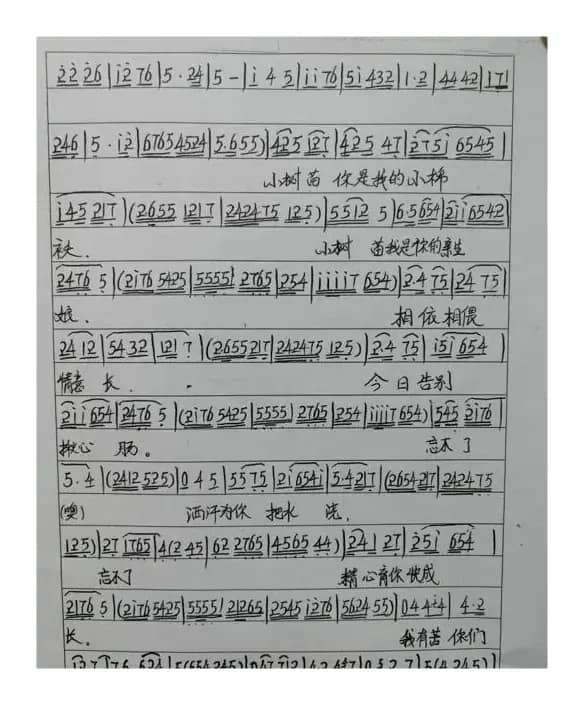 2226|1276|5·24|5-|145|1176|51432|1·2|4442|171
246|5·12|67654524|5.655)|425127|42547|2751 6545|
小树苗 你是我的小棉
145217|(2655 1217|242475 125)|5512 5|6·5654|2116542|
袄. 小树 苗我是你的亲生
2476 5|(2176 5425|55551 2765|254|111117 654)|2·4 75|24 75|
娘. 相依相偎
2412|5432|1217|(2655217|242475 125)|2·4 75|151654|
情意长. 今日告别
211654|2476 5|(2176 5425|55551 2765|254|111117654)|545 2176|
揪心 肠。 忘不了
5·4|(2412525)|045|5575|21654|5·4217|(2654217|242475
(噢) 洒汗为你 把水 浇.
125)|27 1765|4(245|62 2765|4565 44)|241 27|251 654|
忘不了 精心育你快成
2176 5|(21765425|55551 21265|2545 1276|5624 55)|0444|4·2
长。 我有苦 你们